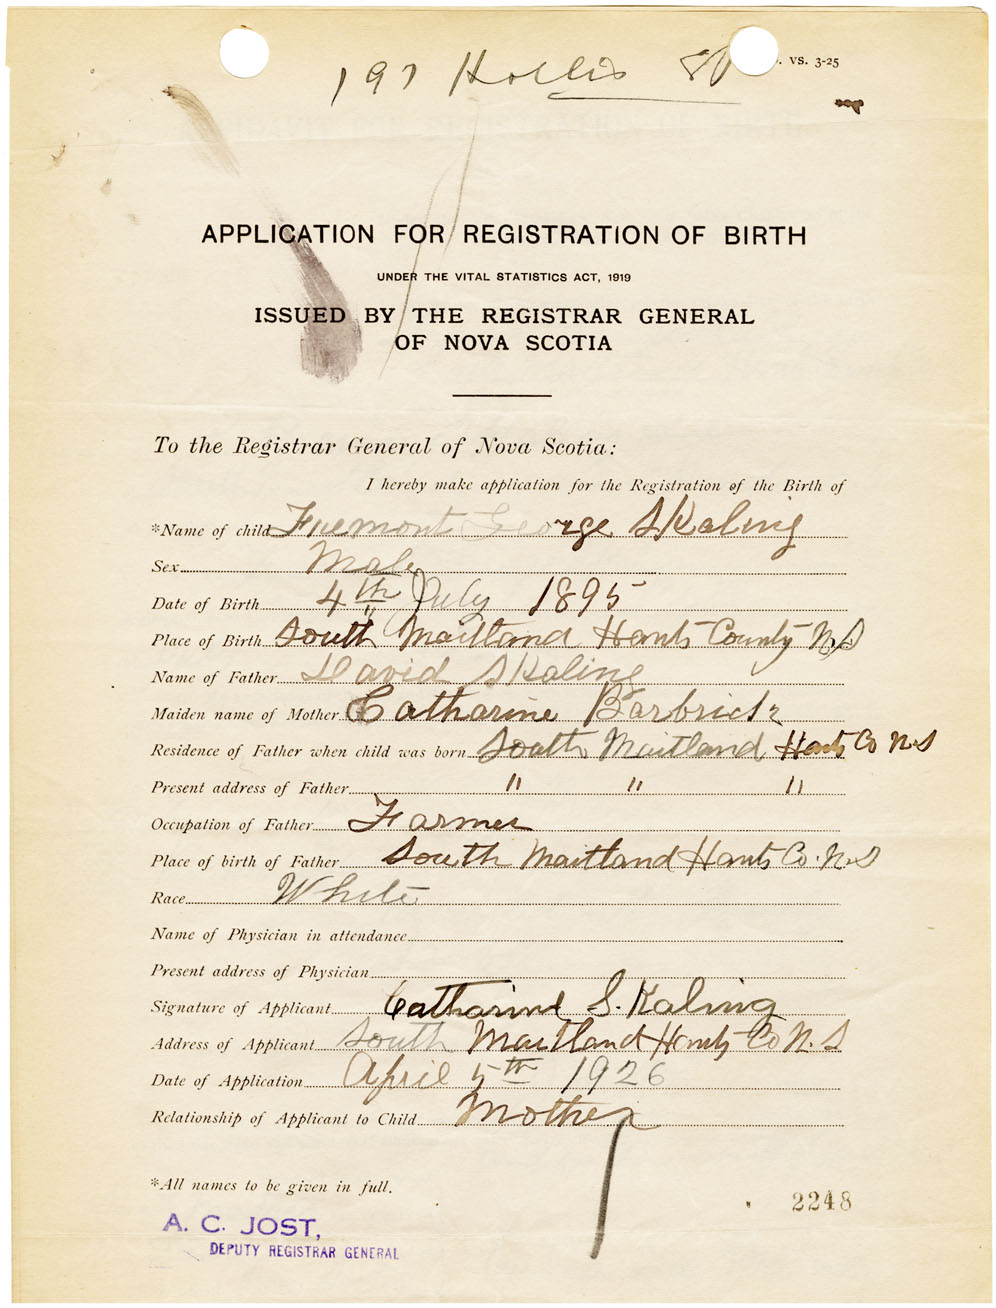 197 Hollis St
. VS. 3-25
APPLICATION FOR REGISTRATION OF BIRTH
UNDER THE VITAL STATISTICS ACT, 1919
ISSUED BY THE REGISTRAR GENERAL
OF NOVA SCOTIA
To the Registrar General of Nova Scotia:
I hereby make application for the Registration of the Birth of
*Name of child Fremont George Skaling
Sex Male
Date of Birth 4th July 1895
Place of Birth South Maitland Hants County N.S
Name of Father David Skaling
Maiden name of Mother Catharine Barbrick
Residence of Father when child was born South Maitland Hants Co N.S
Present address of Father " " "
Occupation of Father Farmer
Place of birth of Father South Maitland Hants Co. N.S
Race White
Name of Physician in attendance
Present address of Physician
Signature of Applicant Catharine S.Kaling
Address of Applicant South Maitland Hants Co N.S
Date of Application April 5th 1926
Relationship of Applicant to Child Mother
*All names to be given in full.
2248
A. C. JOST,
DEPUTY REGISTRAR GENERAL